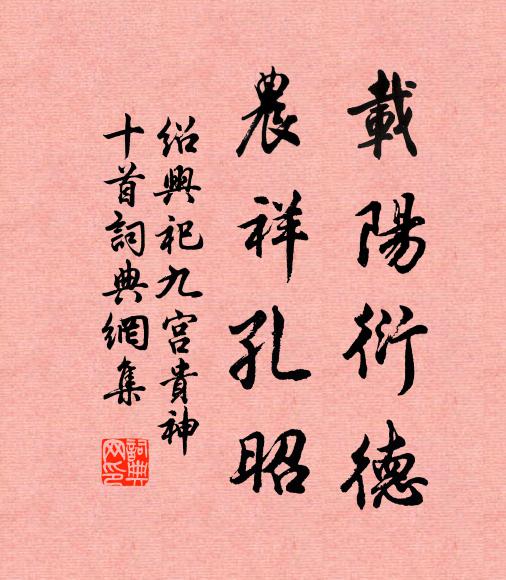 載陽衍德
農祥孔昭
紹興祀九宮貴神
十首詞典網集
詞典網印